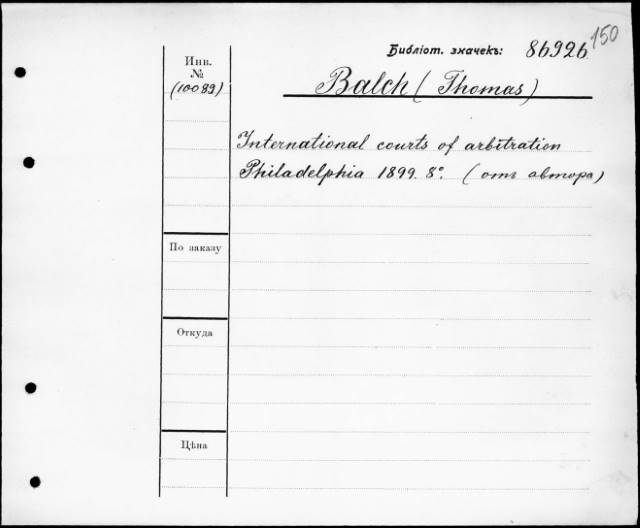 150
Библіот. значекъ: 86926
Инв.
№
(10089)
Balch (Thomas)
International courts of arbitration
Philadelphia 1899. 8°. (отъ автора)
По заказу
Откуда
Цѣна